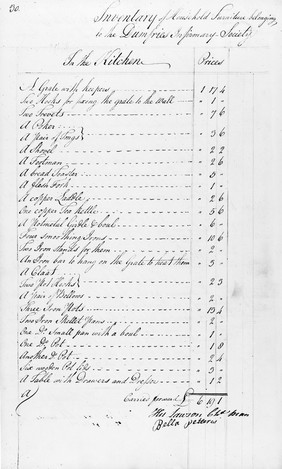 20.
Inventory of Household Furniture belonging
to the Dumfries Infirmary Society
In the Kitchen Prices
A Grate with keepers 1 17 4
Two Hooks for fixing the grate to the wall 1 -
Two Trevets 7 6
A Poker
A Pair of Tongs } 3 6
A Shovel 2 2
A Footman 2 6
A bread Toaster 5
A flesh Fork 1 -
A copper Laddle 2 6
One copper Tea Kettle 5 6
A Girdle & bowl 6 -
Four smoothing Irons 10 6
Two Iron Stands for them 2 -
An Iron bar to hang on the grate to heat them 5
A
Two Pot Hooks 2 3
A Pair of Bellows 2 -
Three Iron Pots 19 4
Two Iron Pans 2 -
One Do. Small pan with a bowl 1 -
One Do. Pot 1 8
Another Do. Pot 2 4
Two Pot lids 3
A Table with Drawers and Dresser 1 2
Carried forward £ 6 19 1